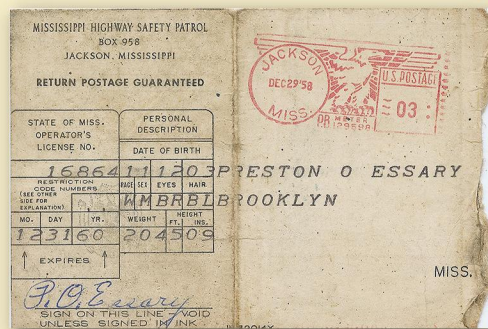 MISSISSIPPI HIGHWAY SAFETY PATROL
BOX 958
JACKSON, MISSISSIPPI
RETURN POSTAGE GUARANTEED
JACKSON
DEC 29 '58
MISS.
U.S. POSTAGE
03
PB METER
STATE OF MISS.
OPERATOR'S
LICENSE NO.
PERSONAL
DESCRIPTION
DATE OF BIRTH
16864 111203 PRESTON O ESSARY
RESTRICTION
CODE NUMBERS
(SEE OTHER
SIDE FOR
EXPLANATION)
RACE SEX EYES HAIR
WMBRBLBROOKLYN
MO. DAY YR.
WEIGHT HEIGHT
FT. INS.
123160 204509
EXPIRES
MISS.
P.O. Essary
SIGN ON THIS LINE—VOID
UNLESS SIGNED IN INK